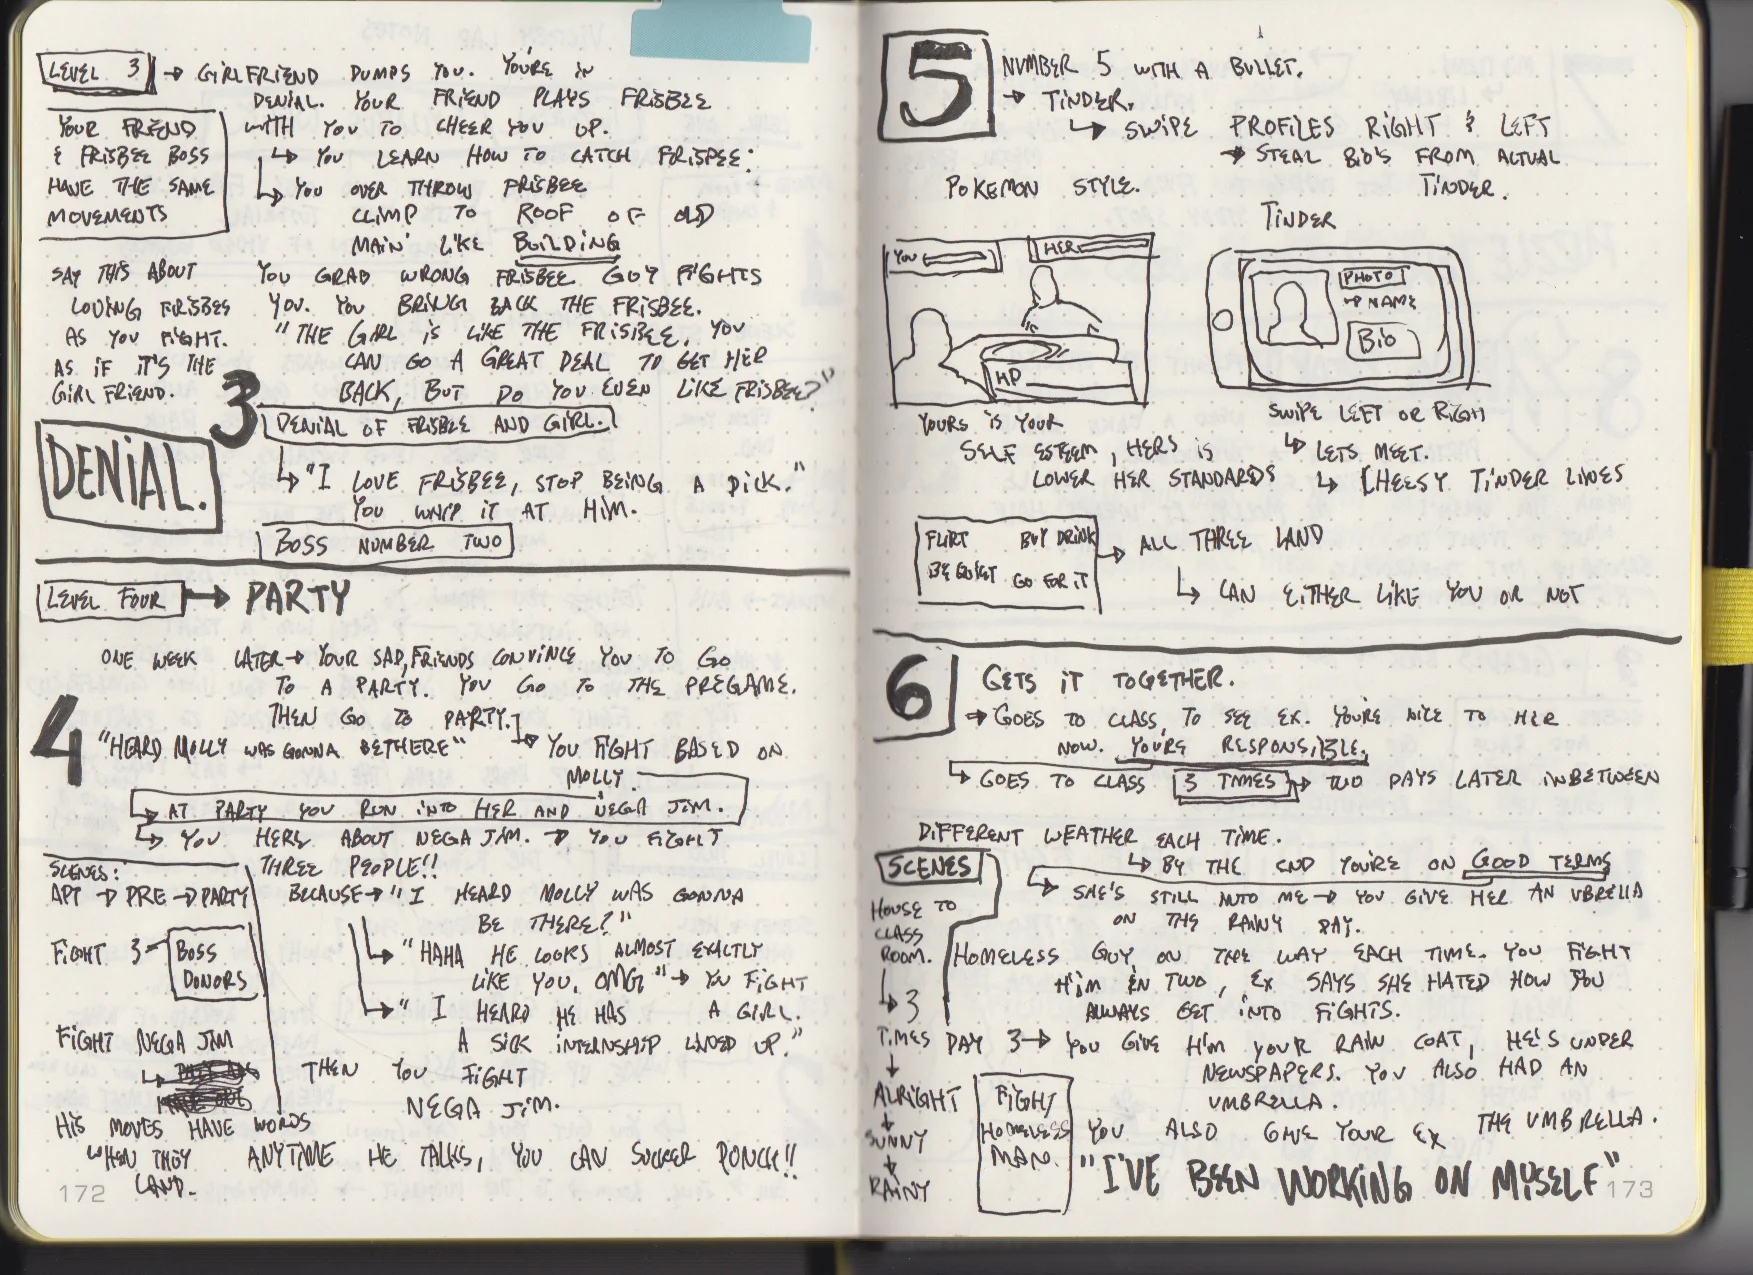 LEVEL 3 → GIRLFRIEND DUMPS YOU. YOU'RE IN
DENIAL. YOUR FRIEND PLAYS FRISBEE
WITH YOU TO CHEER YOU UP.
↳ YOU LEARN HOW TO CATCH FRISBEE:
↳ YOU OVER THROW FRISBEE
CLIMB TO ROOF OF OLD
MAIN' LIKE BUILDING
YOUR FRIEND
& FRISBEE BOSS
HAVE THE SAME
MOVEMENTS
YOU GRAB WRONG FRISBEE GUY FIGHTS
YOU. YOU BRING BACK THE FRISBEE.
"THE GIRL IS LIKE THE FRISBEE, YOU
CAN GO A GREAT DEAL TO GET HER
BACK, BUT DO YOU EVEN LIKE FRISBEE?"
SAY THIS ABOUT
LOVING FRISBEE
AS YOU FIGHT.
AS IF IT'S THE
GIRL FRIEND.
3
DENIAL.
DENIAL OF FRISBEE AND GIRL.
↳ "I LOVE FRISBEE, STOP BEING A DICK."
YOU WHIP IT AT HIM.
BOSS NUMBER TWO
LEVEL FOUR → PARTY
4
ONE WEEK LATER → YOUR SAD, FRIENDS CONVINCE YOU TO GO
TO A PARTY. YOU GO TO THE PREGAME.
THEN GO TO PARTY.
"HEARD MOLLY WAS GONNA BETHERE" ↳ YOU FIGHT BASED ON
MOLLY.
↳ AT PARTY YOU RUN INTO HER AND NEGA JIM.
↳ YOU HERE ABOUT NEGA JIM. → YOU FIGHT
THREE PEOPLE!!
BECAUSE → "I HEARD MOLLY WAS GONNA
BE THERE?"
↳ "HAHA HE LOOKS ALMOST EXACTLY
LIKE YOU, OMG" → YOU FIGHT
↳ "I HEARD HE HAS A GIRL.
A SICK INTERNSHIP LINED UP."
THEN YOU FIGHT
NEGA JIM.
SCENES:
APT → PRE → PARTY
FIGHT 3 - BOSS
DONORS
FIGHT NEGA JIM
HIS MOVES HAVE WORDS
WHEN THEY
LAND.
ANYTIME HE TALKS, YOU CAN SUCKER PUNCH!!
172
5
NUMBER 5 WITH A BULLET.
→ TINDER.
↳ SWIPE PROFILES RIGHT & LEFT
→ STEAL BIO'S FROM ACTUAL
TINDER.
POKEMON STYLE.
YOU
HER
HP
TINDER
PHOTO
→ NAME
BIO
YOURS IS YOUR
SELF ESTEEM, HERS IS
LOWER HER STANDARDS
SWIPE LEFT OR RIGH
↳ LETS MEET.
↳ CHEESY TINDER LINES
FLIRT BUY DRINK
BE QUIET GO FOR IT
→ ALL THREE LAND
↳ CAN EITHER LIKE YOU OR NOT
6
GETS IT TOGETHER.
→ GOES TO CLASS, TO SEE EX. YOU'RE NICE TO HER
NOW. YOU'RE RESPONSIBLE.
↳ GOES TO CLASS 3 TIMES → TWO DAYS LATER INBETWEEN
DIFFERENT WEATHER EACH TIME.
↳ BY THE END YOU'RE ON GOOD TERMS
↳ SHE'S STILL INTO ME → YOU GIVE HER AN UBRELLA
ON THE RAINY DAY.
HOMELESS GUY ON THE WAY EACH TIME. YOU FIGHT
HIM IN TWO, EX SAYS SHE HATED HOW YOU
ALWAYS GET INTO FIGHTS.
DAY 3 → YOU GIVE HIM YOUR RAIN COAT, HE'S UNDER
NEWSPAPERS. YOU ALSO HAD AN
UMBRELLA.
YOU ALSO GIVE YOUR EX THE UMBRELLA.
"I'VE BEEN WORKING ON MYSELF"
SCENES
HOUSE TO
CLASS
ROOM.
↳ 3
TIMES
↓
ALRIGHT
↓
SUNNY
↓
RAINY
FIGHT
HOMELESS
MAN.
173